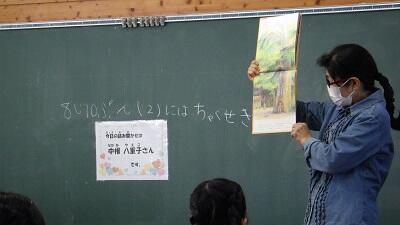 8じ10ぷん(2)にはちゃくせき
今日の読み聞かせは
なかね やえこ
中根 八重子さん
です。